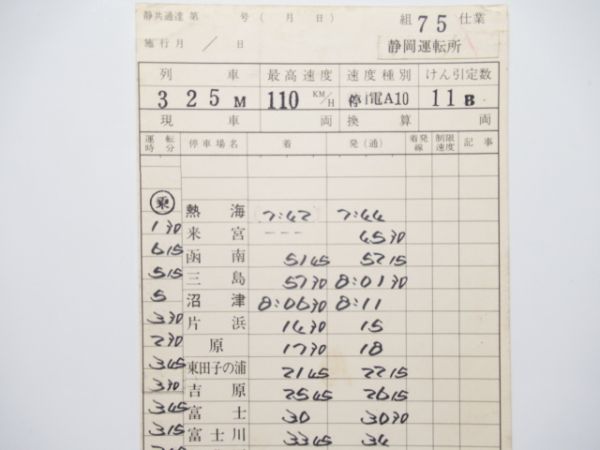 静共通達 第 号 ( 月 日 ) 組 75 仕業
施行月 / 日 静岡運転所
列 車 最高速度 速度種別 けん引定数
325M 110 KM/H 停電A10 11B
現 車 両 換 算 両
運転時分 停車場名 着 発(通) 着発線 制限速度 記事
乗 熱海 7:42 7:44
1 30 来宮 --- 45 30
6 15 函南 51 45 52 15
5 15 三島 57 30 8:01 30
5 沼津 8:06 30 8:11
3 30 片浜 14 30 15
2 30 原 17 30 18
3 45 東田子の浦 21 45 22 15
3 30 吉原 25 45 26 15
3 45 富士 30 30 30
3 15 富士川 33 45 34